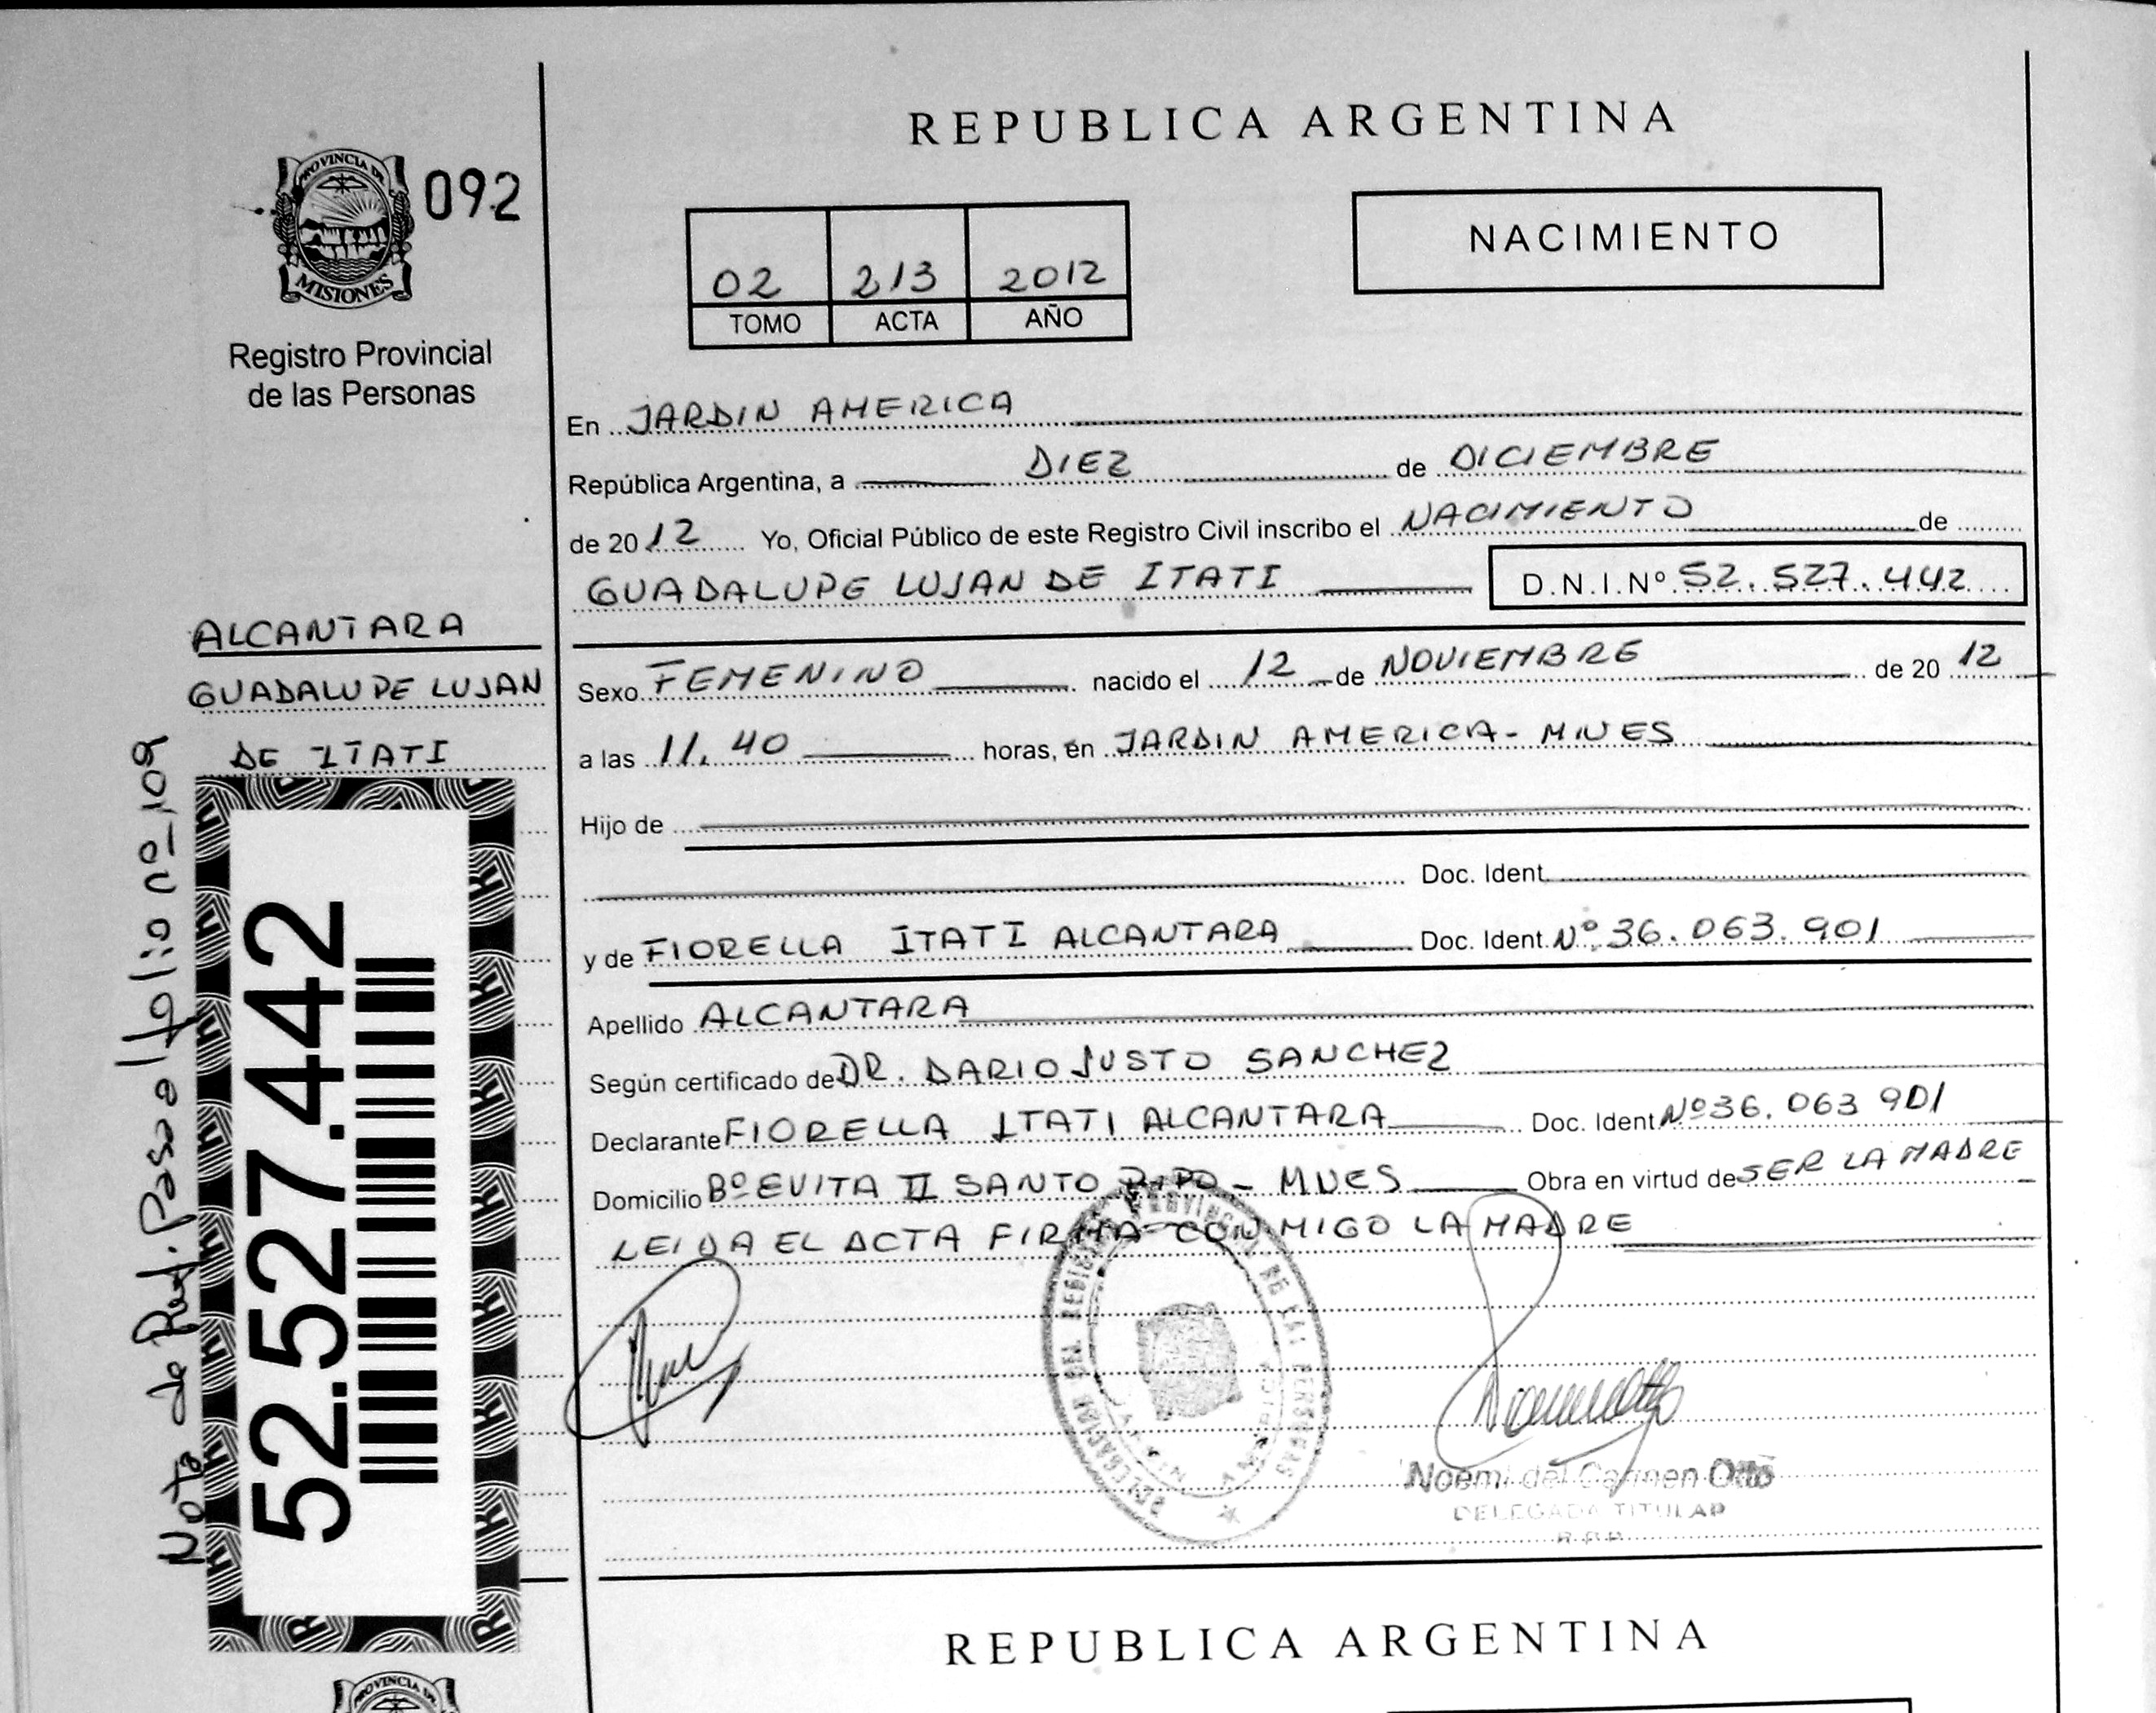 REPUBLICA ARGENTINA
PROVINCIA DE
MISIONES
092
Registro Provincial
de las Personas
02 213 2012
TOMO ACTA AÑO
NACIMIENTO
En JARDIN AMERICA
República Argentina, a DIEZ de DICIEMBRE
de 2012 Yo, Oficial Público de este Registro Civil inscribo el NACIMIENTO de
GUADALUPE LUJAN DE ITATI D.N.I.Nº 52.527.442
ALCANTARA
GUADALUPE LUJAN
DE ITATI
Sexo FEMENINO nacido el 12 de NOVIEMBRE de 2012
a las 11.40 horas, en JARDIN AMERICA - MNES
Hijo de
Doc. Ident.
y de FIORELLA ITATI ALCANTARA Doc. Ident. Nº 36.063.901
Apellido ALCANTARA
Según certificado de DR. DARIO JUSTO SANCHEZ
Declarante FIORELLA ITATI ALCANTARA Doc. Ident Nº 36.063 901
Domicilio Bº EVITA II SANTO PIPO - MNES Obra en virtud de SER LA MADRE
LEIDA EL ACTA FIRMA CON MIGO LA MADRE
Nota de Ref. Pasa al folio nº 109
52.527.442
DELEGACION DEL REGISTRO PROVINCIAL DE LAS PERSONAS
JARDIN AMERICA
Noemi del Carmen Otto
DELEGADA TITULAR
R.P.P.
REPUBLICA ARGENTINA
PROVINCIA DE